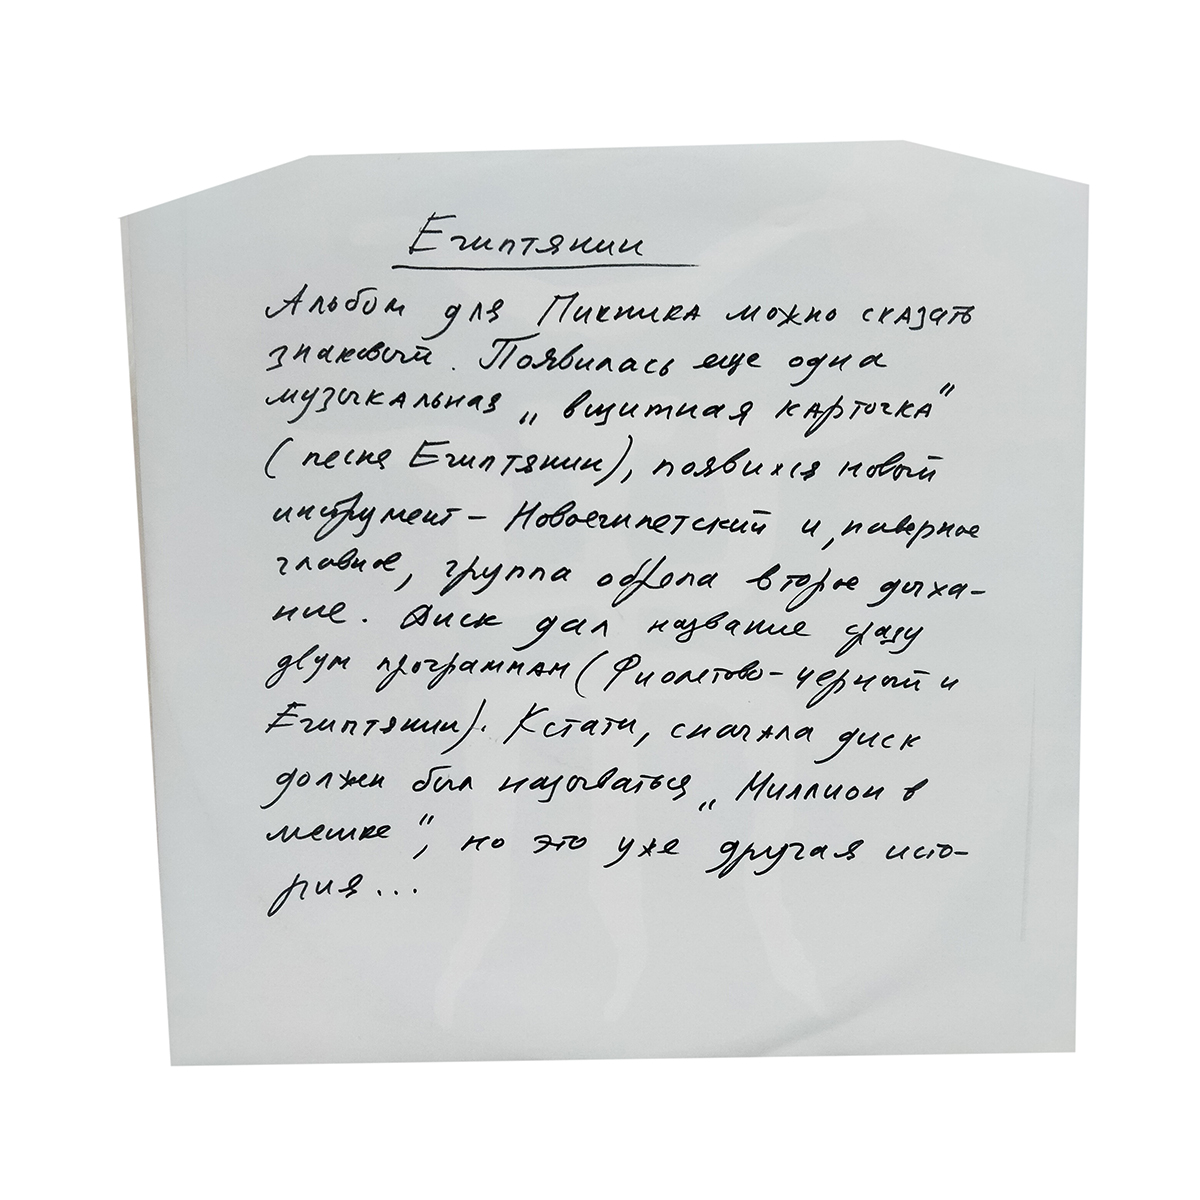 Египтянин
Альбом для Пикника можно сказать
знаковый. Появилась еще одна
музыкальная „вщитная карточка"
(песня Египтянин), появился новый
инструмент – Новоегипетский и, наверное
главное, группа обрела второе дыха-
ние. Диск дал название сразу
двум программам (Фиолетово-черный и
Египтянин). Кстати, сначала диск
должен был называться „Миллион в
мешке", но это уже другая исто-
рия...